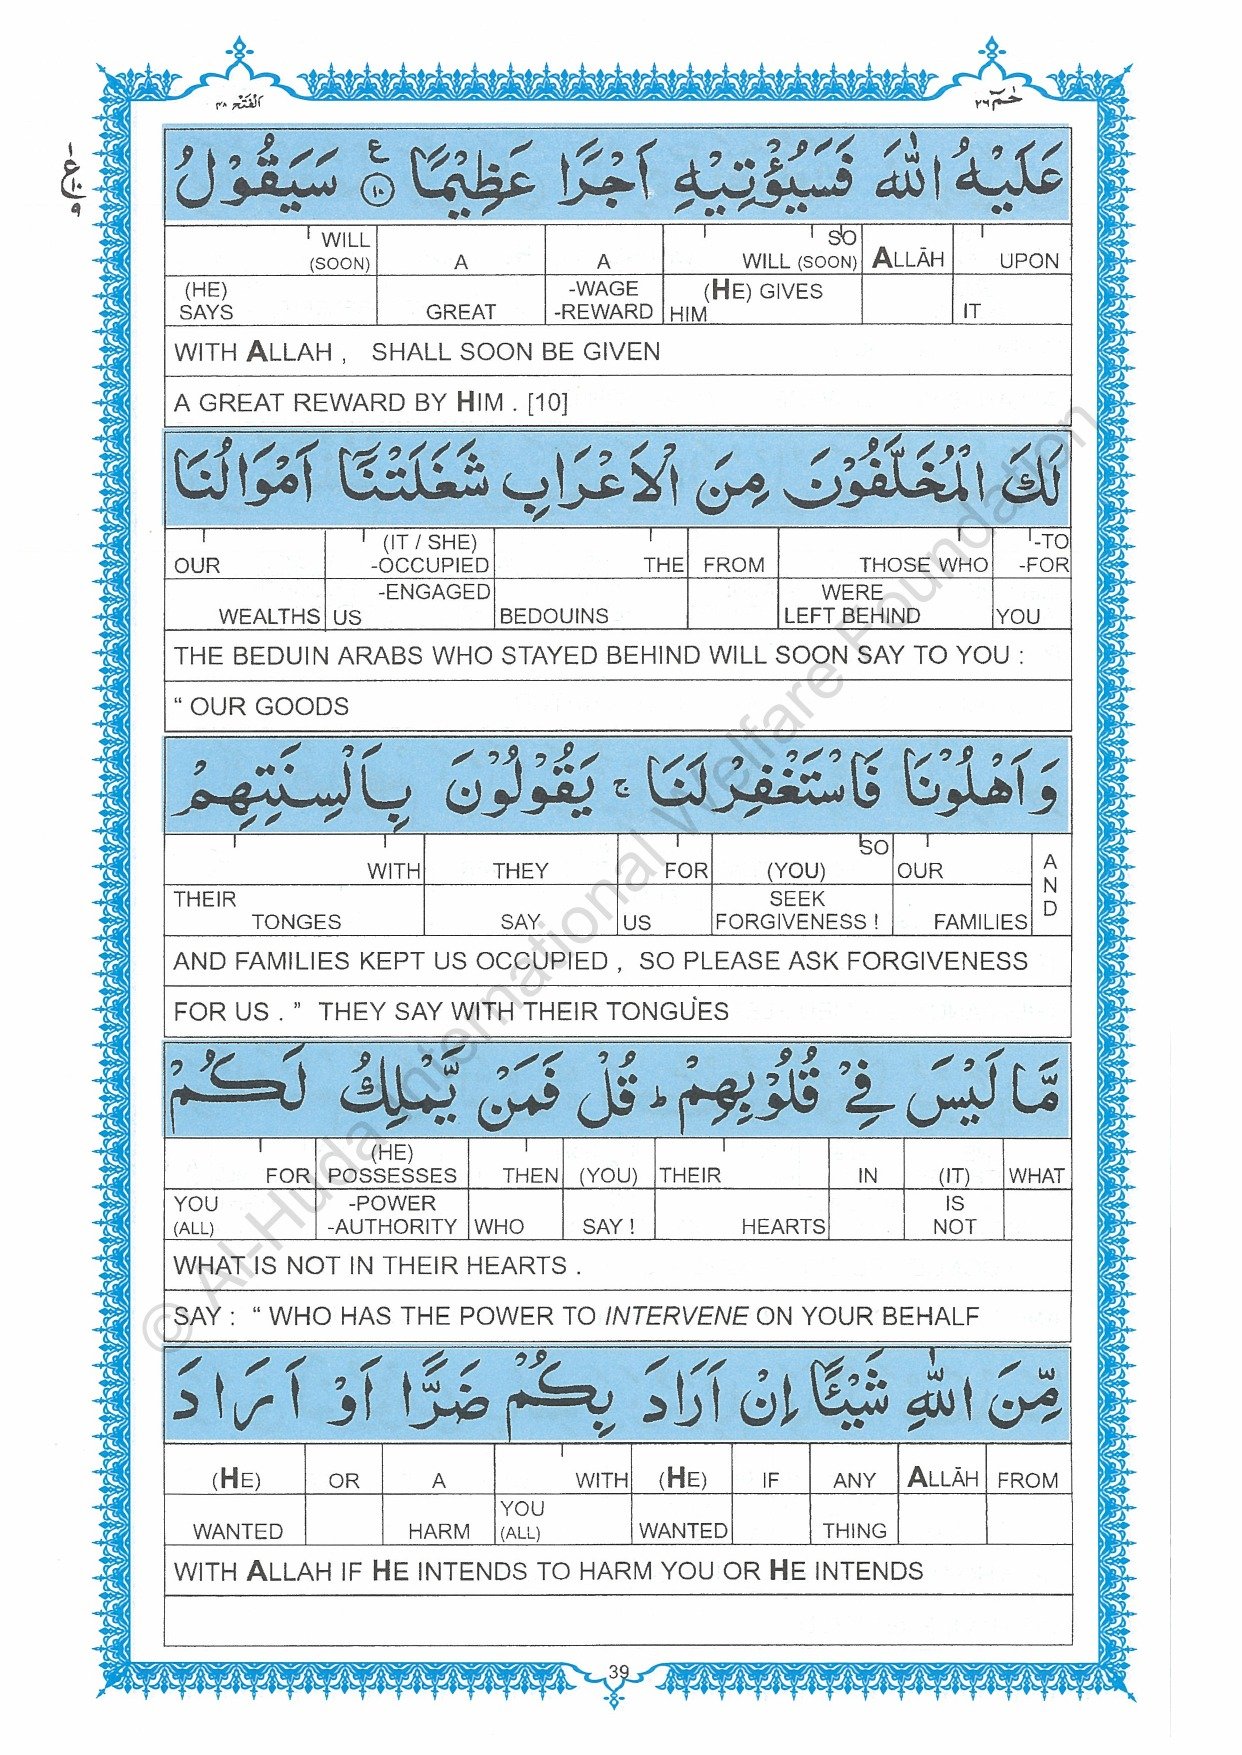 اَلْفَتْح ٤٨ حٰمٓ ٢٦
ع ١ ١٠ ٩
عَلَيْهُ اللّٰهَ فَسَيُؤْتِيْهِ اَجْرًا عَظِيْمًا ع ١٠ سَيَقُوْلُ
WILL (SOON) A A SO WILL (SOON) ALLĀH UPON
(HE) SAYS GREAT -WAGE -REWARD (HE) GIVES HIM IT
WITH ALLAH , SHALL SOON BE GIVEN
A GREAT REWARD BY HIM . [10]
لَكَ الْمُخَلَّفُوْنَ مِنَ الْاَعْرَابِ شَغَلَتْنَاۤ اَمْوَالُنَا
OUR (IT / SHE) -OCCUPIED THE FROM THOSE WHO -TO -FOR
WEALTHS -ENGAGED US BEDOUINS WERE LEFT BEHIND YOU
THE BEDUIN ARABS WHO STAYED BEHIND WILL SOON SAY TO YOU :
“ OUR GOODS
وَاَهْلُوْنَا فَاسْتَغْفِرْلَنَا ۚ يَقُوْلُوْنَ بِاَلْسِنَتِهِمْ
WITH THEY FOR SO (YOU) OUR AND
THEIR TONGES SAY US SEEK FORGIVENESS ! FAMILIES
AND FAMILIES KEPT US OCCUPIED , SO PLEASE ASK FORGIVENESS
FOR US . ” THEY SAY WITH THEIR TONGUES
مَّا لَيْسَ فِيْ قُلُوْبِهِمْ ؕ قُلْ فَمَنْ يَّمْلِكُ لَكُمْ
FOR (HE) POSSESSES THEN (YOU) THEIR IN (IT) WHAT
YOU (ALL) -POWER -AUTHORITY WHO SAY ! HEARTS IS NOT
WHAT IS NOT IN THEIR HEARTS .
SAY : “ WHO HAS THE POWER TO INTERVENE ON YOUR BEHALF
مِّنَ اللّٰهِ شَيْـًٔا اِنْ اَرَادَ بِكُمْ ضَرًّا اَوْ اَرَادَ
(HE) OR A WITH (HE) IF ANY ALLĀH FROM
WANTED HARM YOU (ALL) WANTED THING
WITH ALLAH IF HE INTENDS TO HARM YOU OR HE INTENDS
39
© Al-Huda International Welfare Foundation